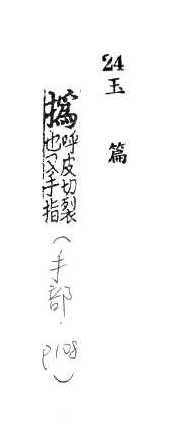 24
玉篇
撝呼皮切裂
也又手指
(手部.
P108)